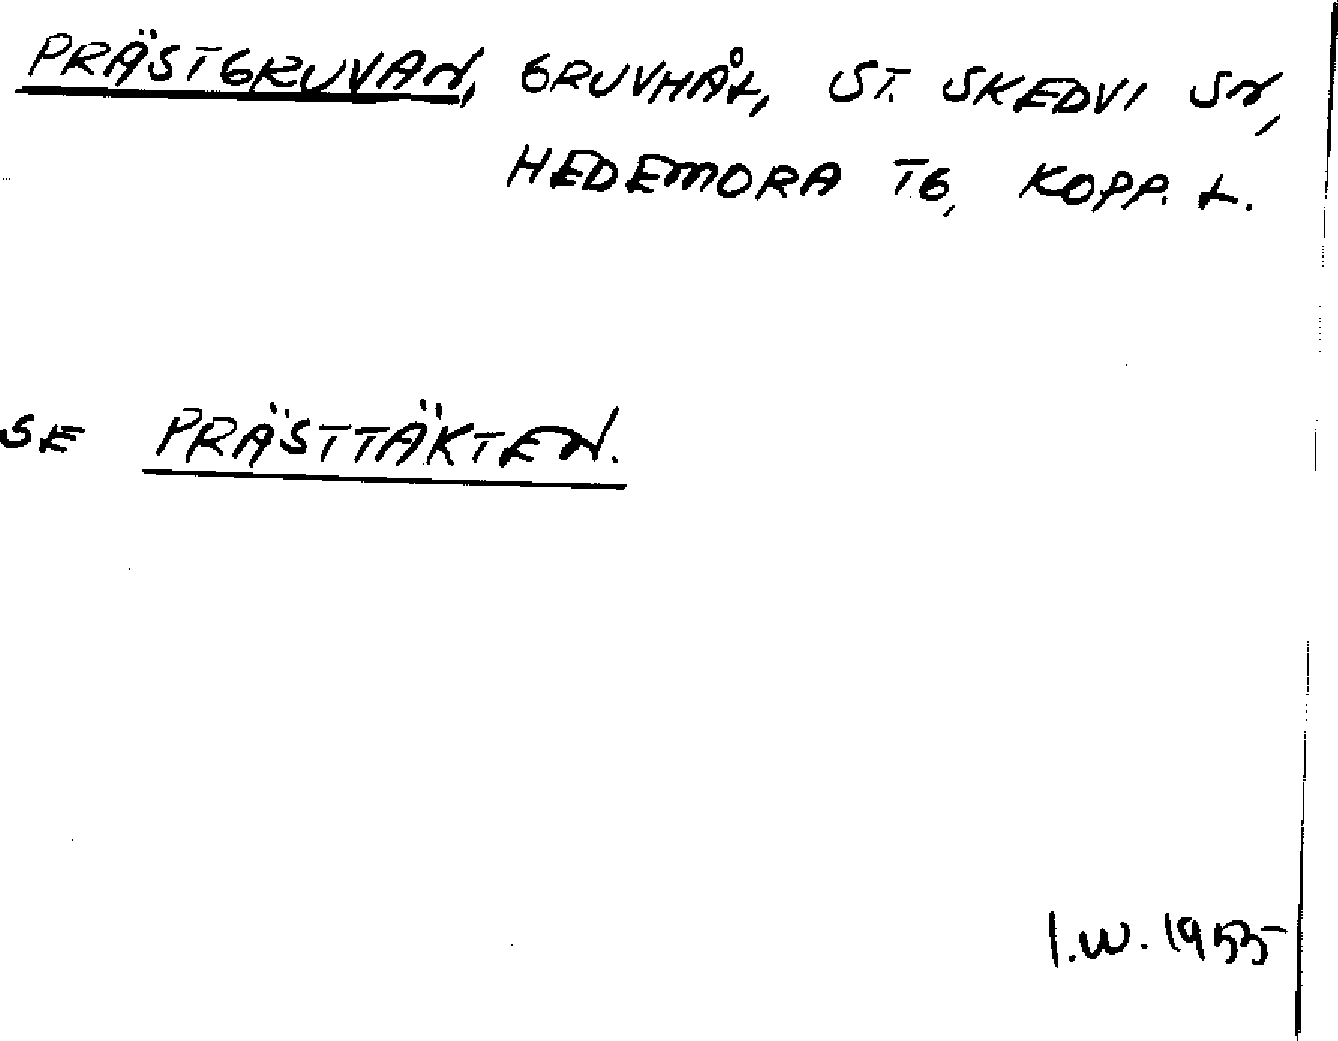 PRÄSTGRUVAN, GRUVHÅL, ST. SKEDVI SN,
HEDEMORA TG, KOPP. L.
SE PRÄSTTÄKTEN.
I.W. 1955